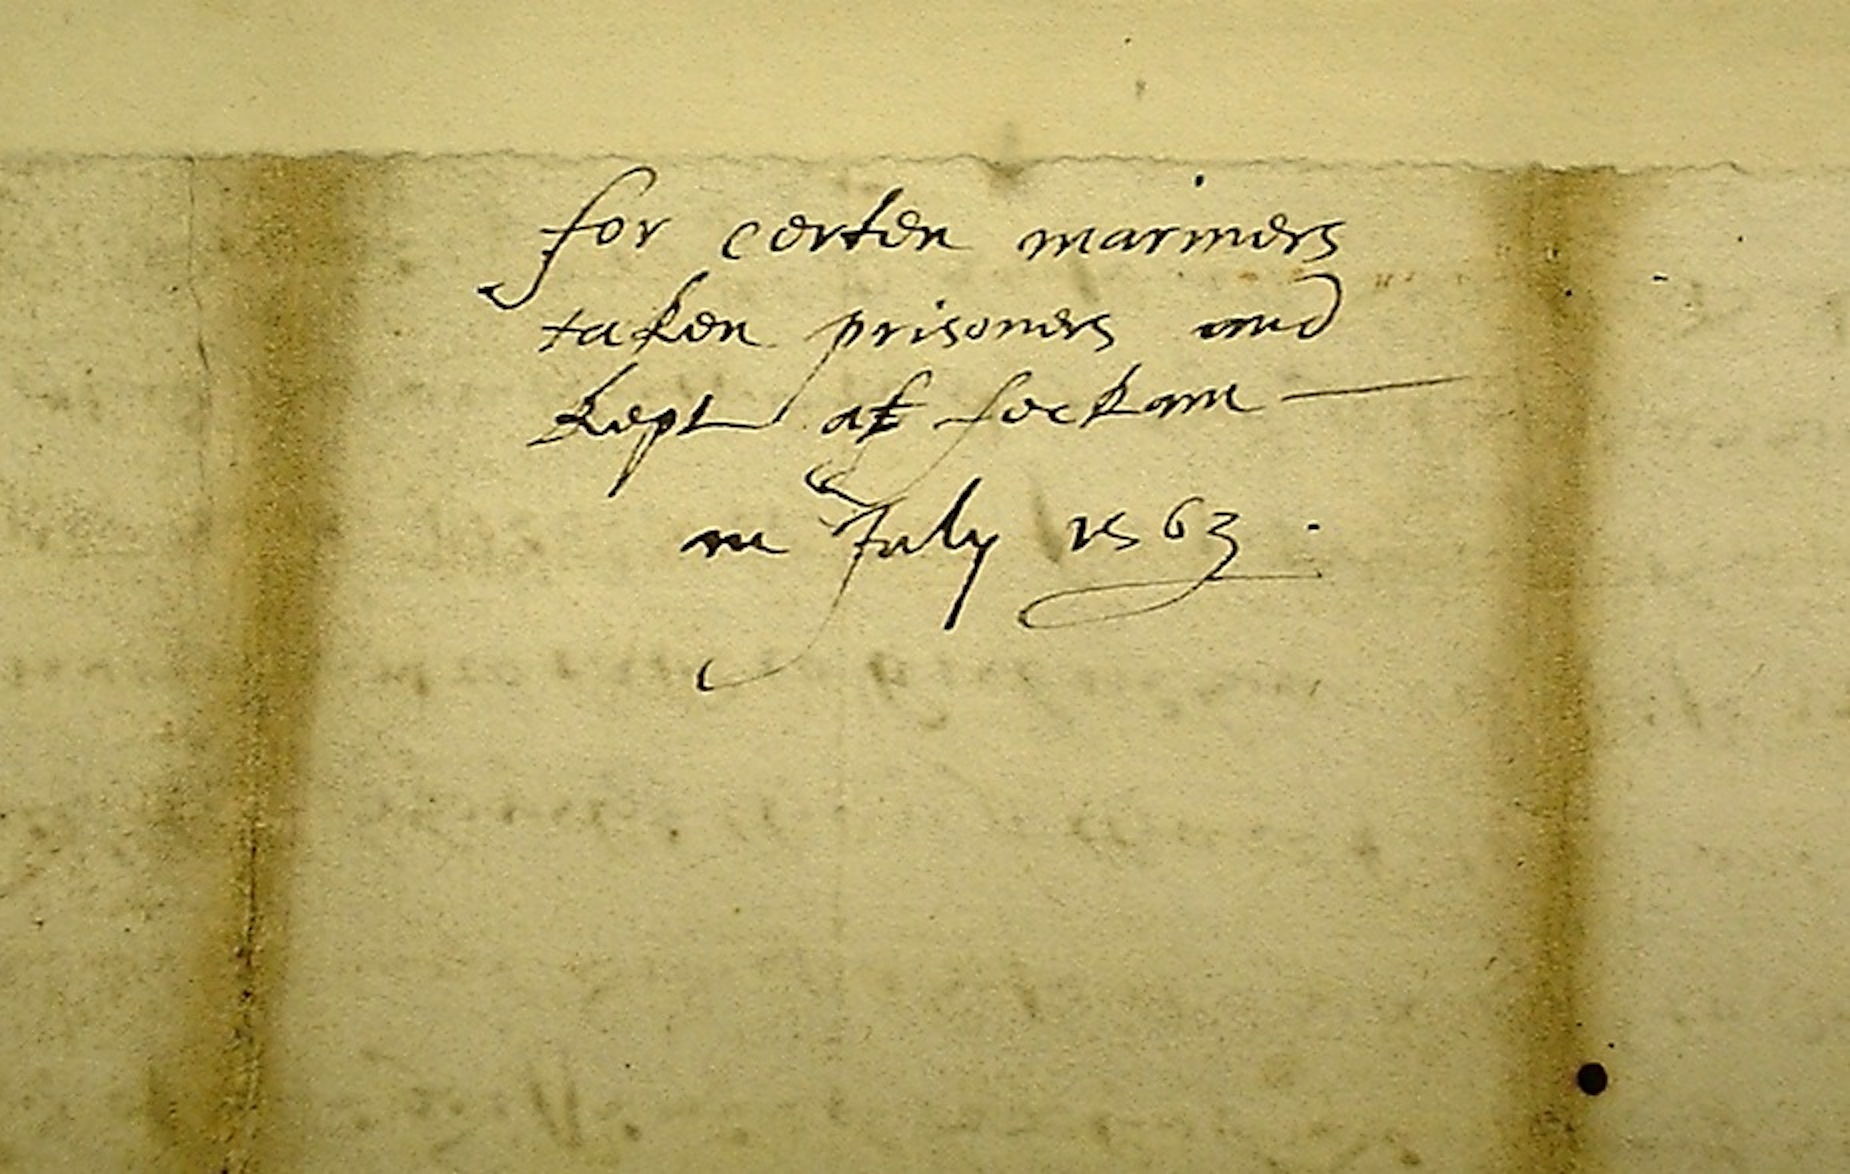 for certen mariners
taken prisoners and
kept at feckam
in July 1563.